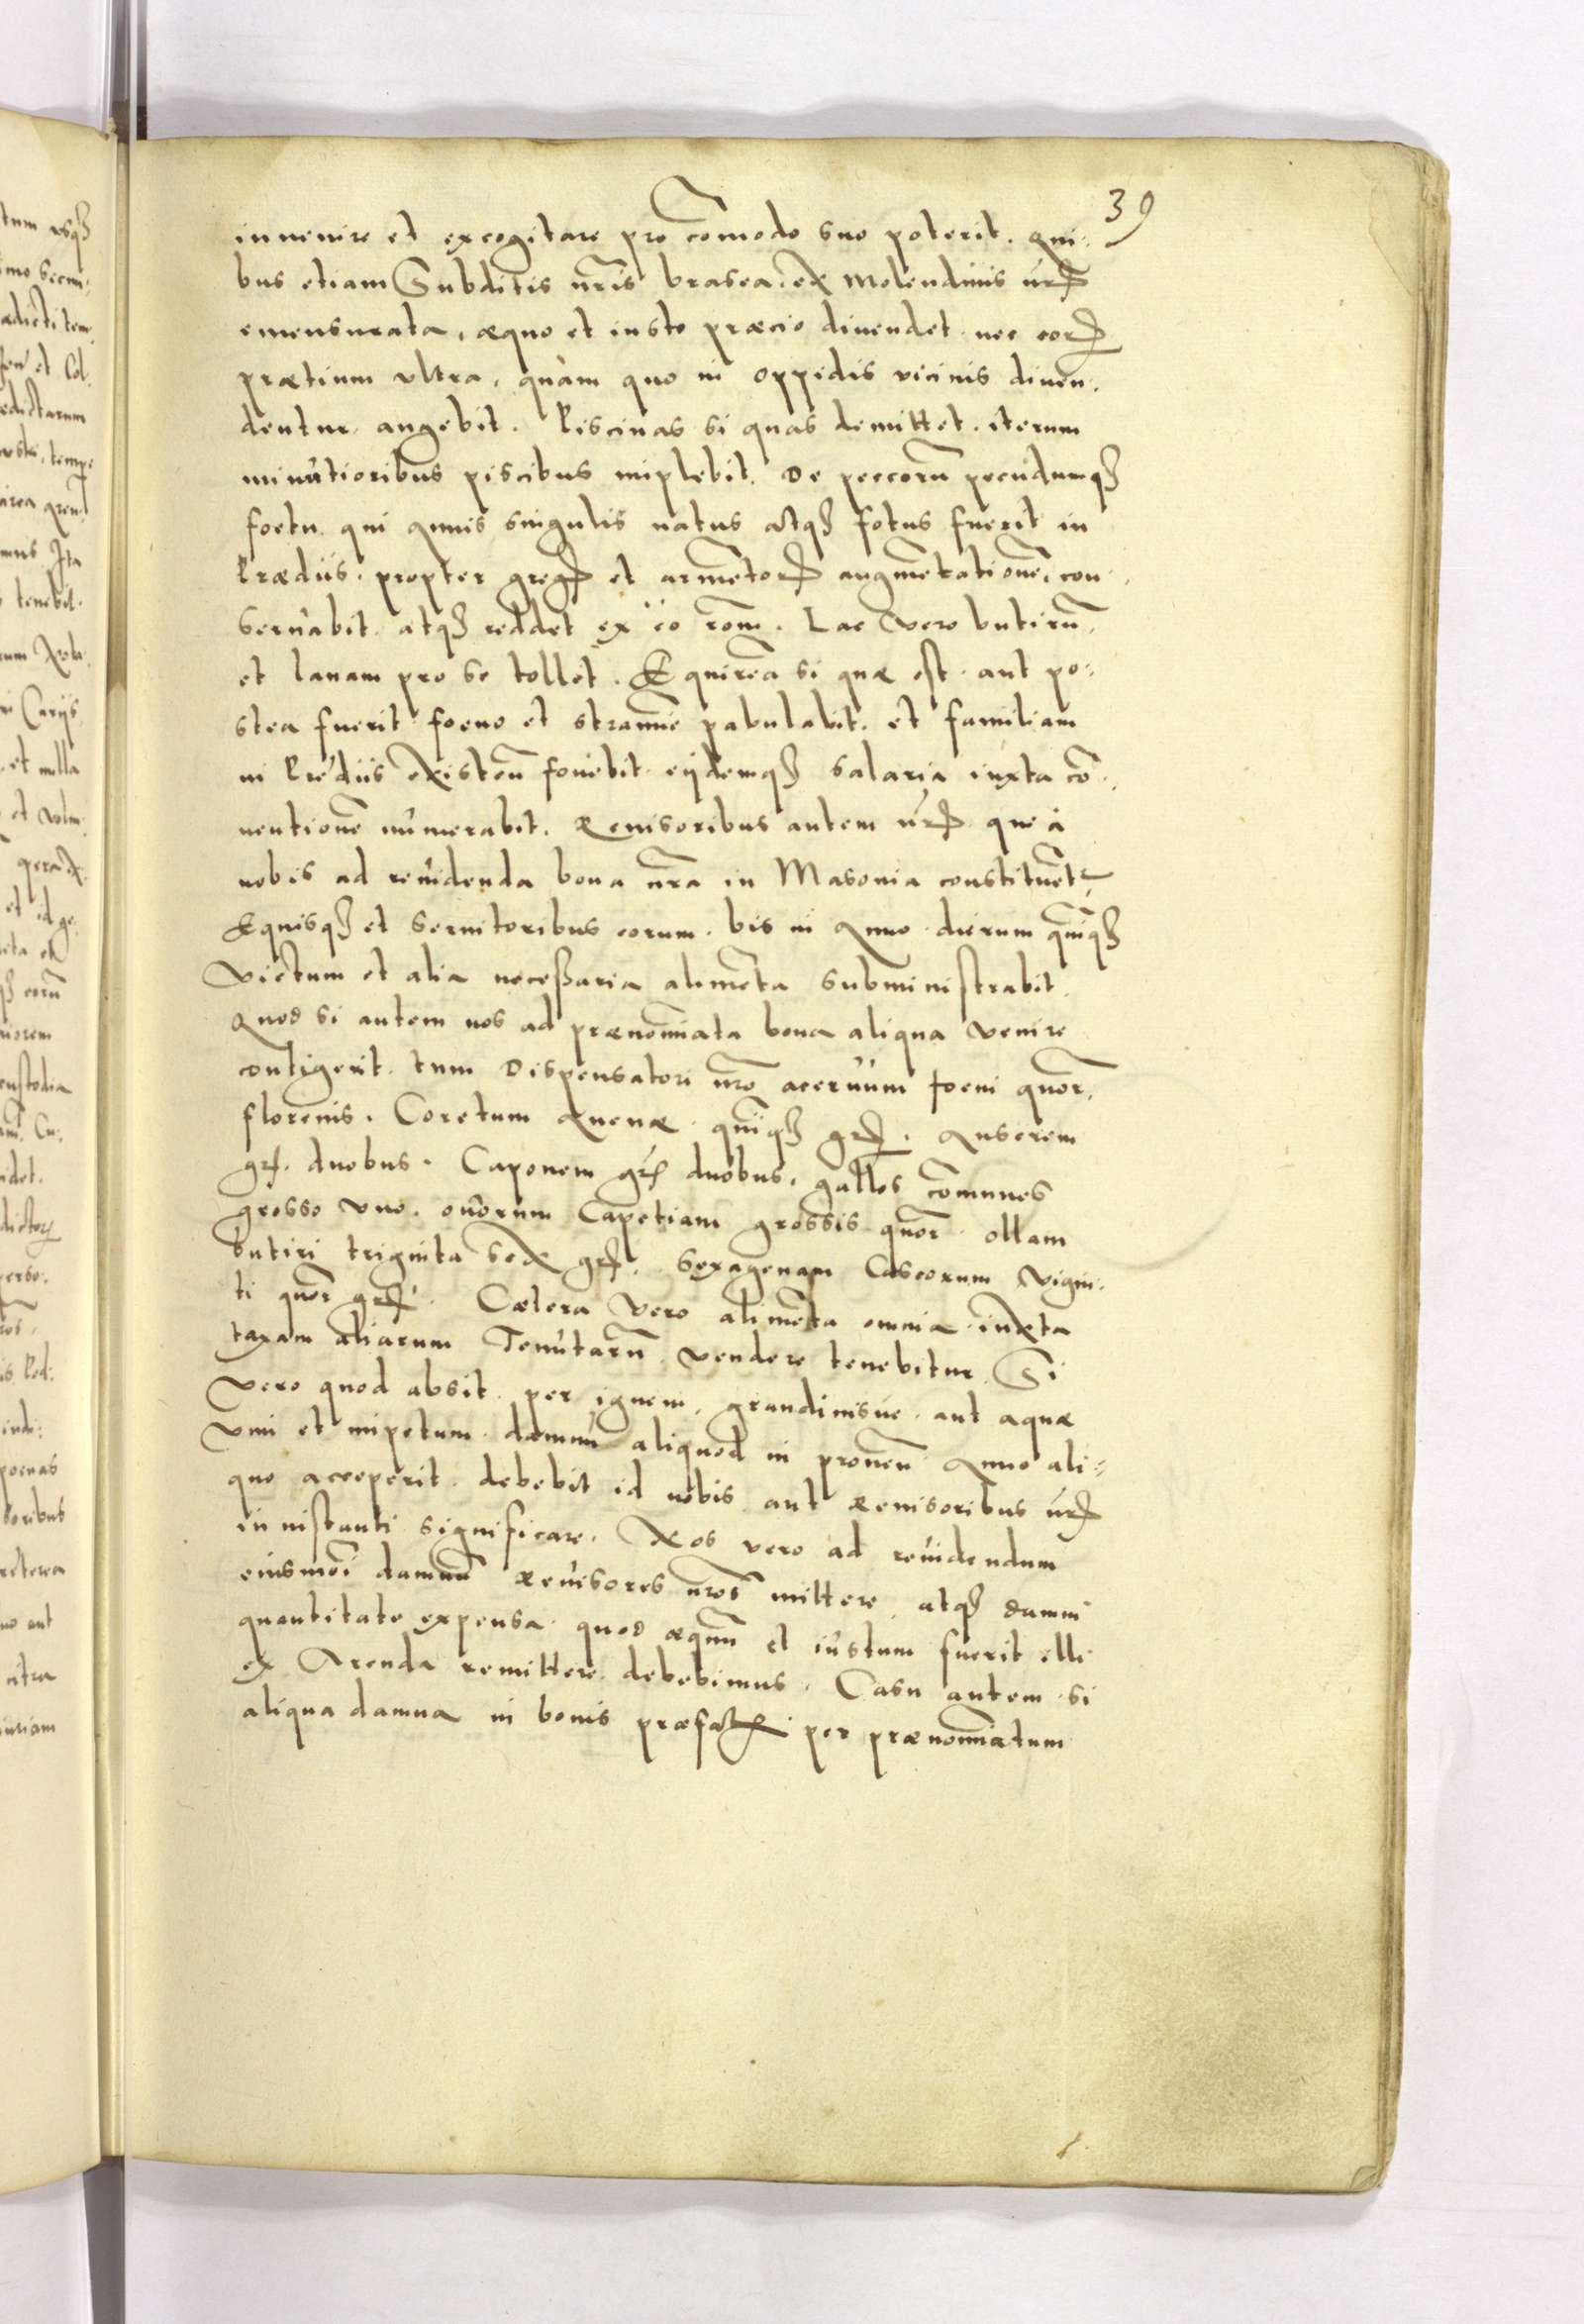 39
invenire et excogitare pro com̄odo suo poterit. Qui:
bus etiam Subditis nr̄is brasea, ex Molendinis nr̄is
emensurata, æquo et iusto præcio divendet. nec eorꝝ
prætium ultra, quàm quo in oppidis vicinis diven:
dentur augebit. Piscinas si quas demittet. iterum
minutioribus piscibus implebit. De peccorū pecudumqꝫ
foetu qui annis singulis natus atqꝫ fotus fuerit in
Prædiis, propter gregꝝ et armētorꝝ augmētationē, con:
servabit. atqꝫ reddet ex eo rōm. Lac vero butirū,
et lanam pro se tollet. Equirea si quæ est. aut po:
stea fuerit foeno et stramīe pabulabit. et familiam
in Prediis existeñ fovebit eijdemqꝫ salaria iuxta cō:
ventionē numerabit. Revisoribus autem nr̄is que à
nobis ad revidenda bona nr̄a in Masovia constituēt
Equisqꝫ et servitoribus eorum, bis in Anno dierum quīqꝫ
victum et alia necessaria alimēta subministrabit.
Quod si autem nos ad prænoīata bona aliqua venire
contigerit. tum Dispensatori nr̄o acervum foeni quōr
florenis. Coretum Avenæ quīqꝫ gr̄. Anserem
gr̄. duobus. Caponem gr̄ duobus, gallos com̄unes
grosso uno. ovorum Capetiam grossis quōr. ollam
butiri triginta sex gr̄. Sexagenam Caseorum vigin:
ti quōr gr̄. Cætera vero alimēta omnia iuxta
taxam aliarum Tenutarū vendere tenebitur. Si
vero quod absit per ignem, grandinisve aut aquæ
vim et impetum damnū aliquod in proveñ Anno ali:
quo acceperit. debebit id nobis aut Revisoribus nr̄is
in instanti significare. Nos vero ad revidendum
eiusmōi damnū Revisores nr̄os mittere, atqꝫ damni
quantitate expensa quod æquū et iustum fuerit illi
ex Arenda remittere debebimus. Casu autem si
aliqua damna in bonis præfatꝭ per prænoīatum